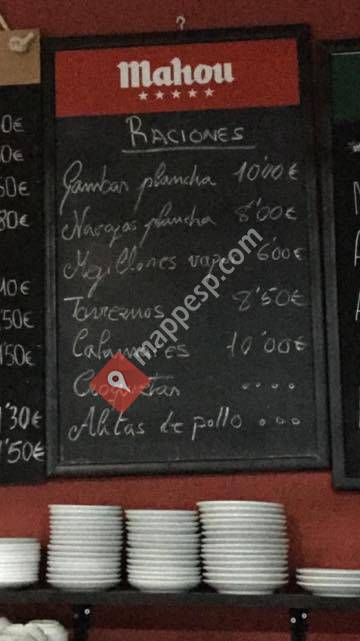 Mahou
RACIONES
Gambas plancha 10'00€
Navajas plancha 8'00€
Mejillones vapor 6'00€
Torreznos 8'50€
Calamares 10'00€
Croquetas ....
Alitas de pollo ...
mappesp.com
0€
0€
50€
80€
10€
'50€
'50€
1'30€
1'50€